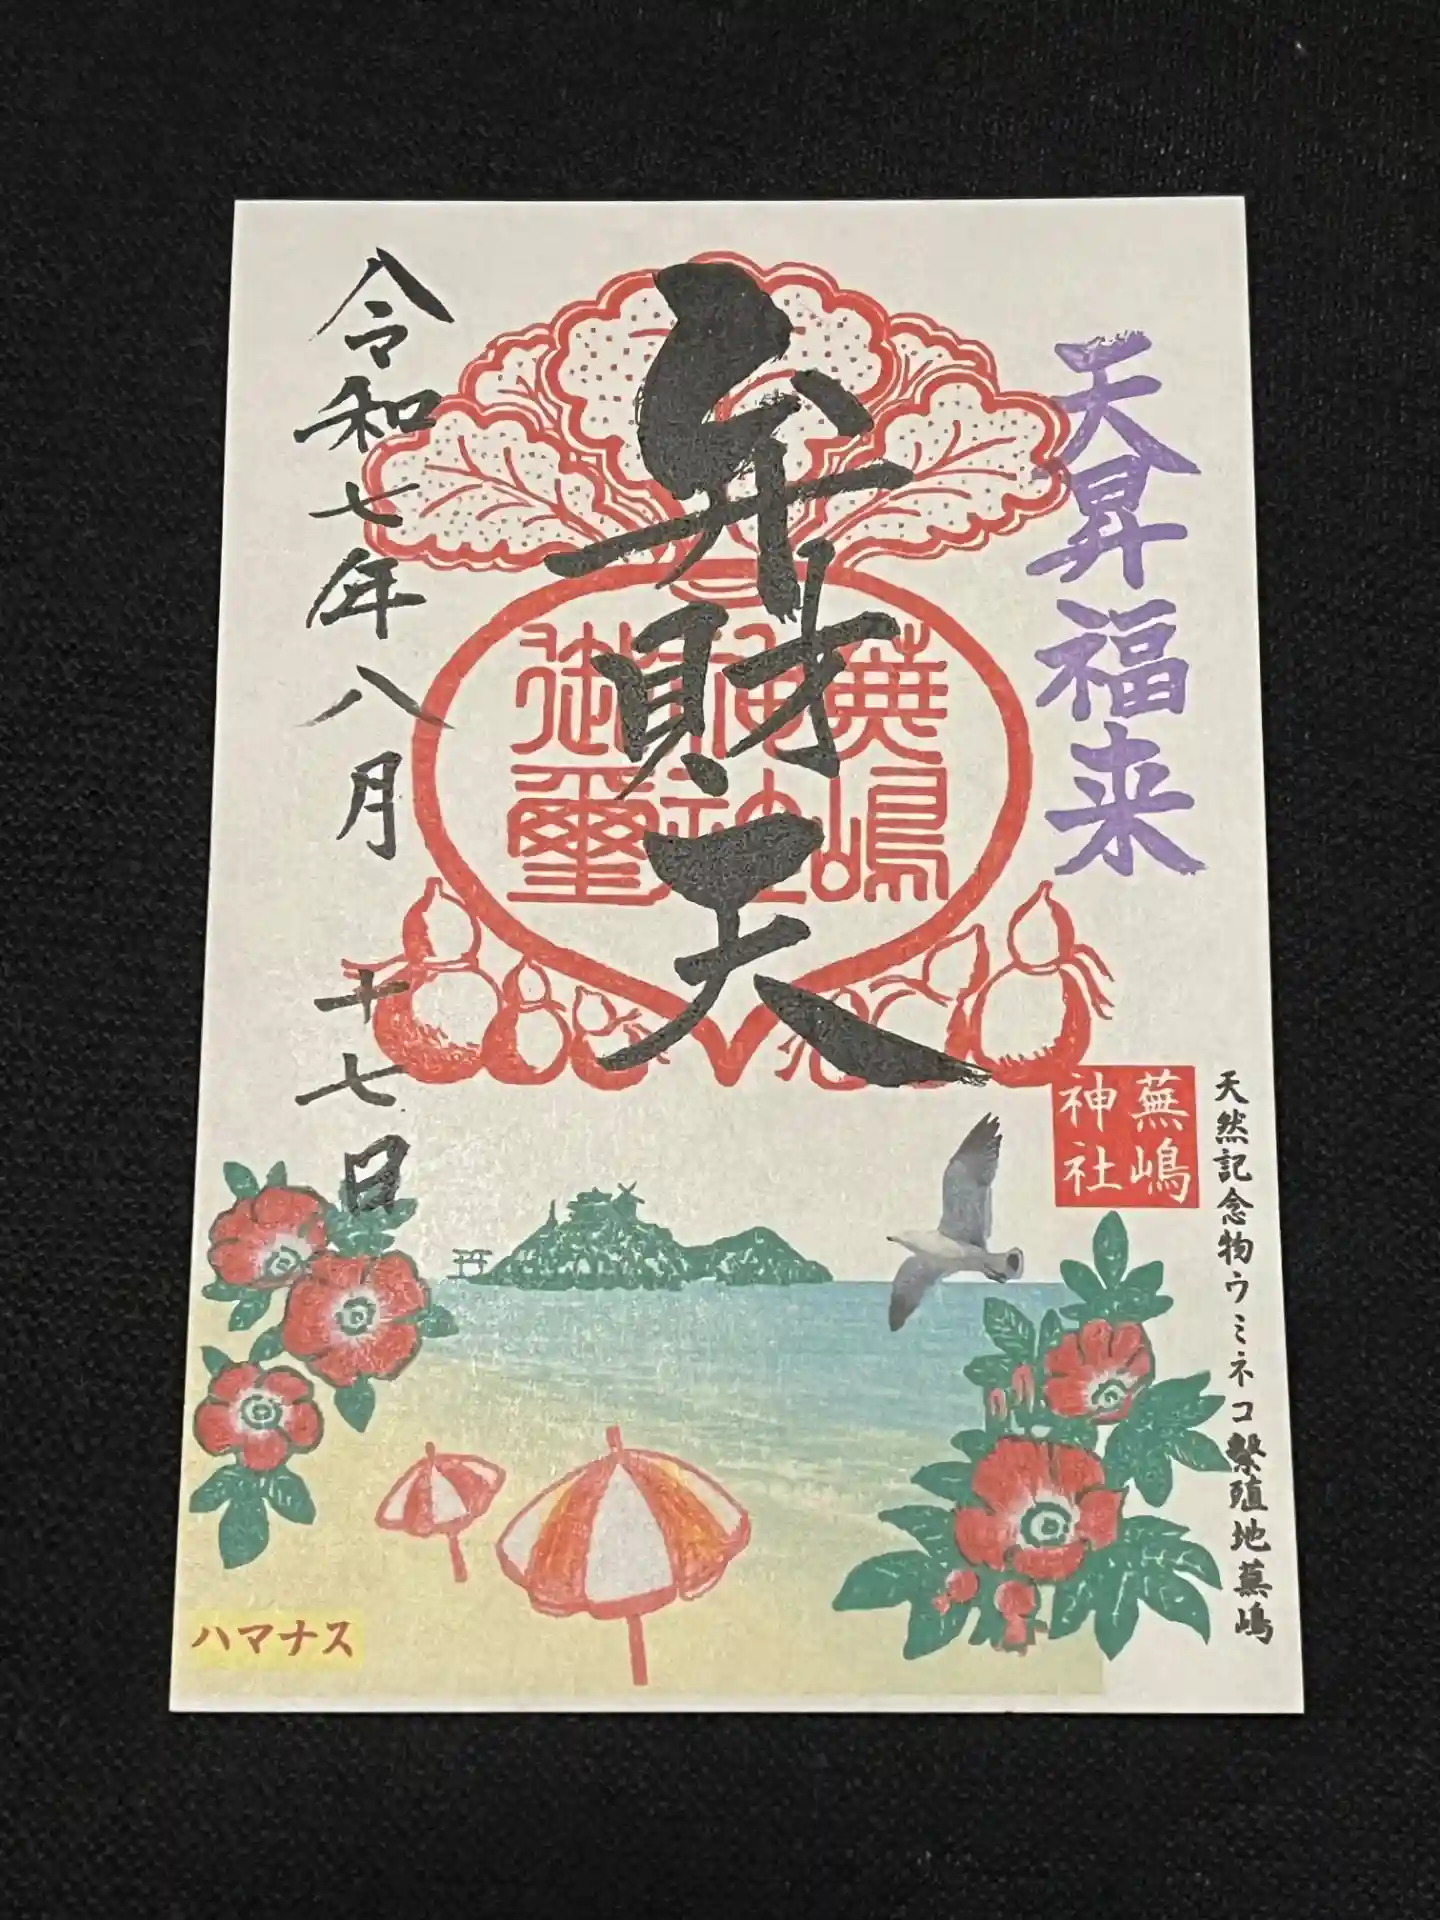 天昇福来
蕪嶋
神社
天然記念物ウミネコ繫殖地蕪嶋
弁財天
蕪嶋
神社
御璽
令和七年八月十七日
ハマナス